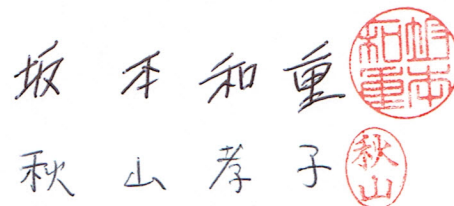 坂本和重 坂本和重
秋山孝子 秋山